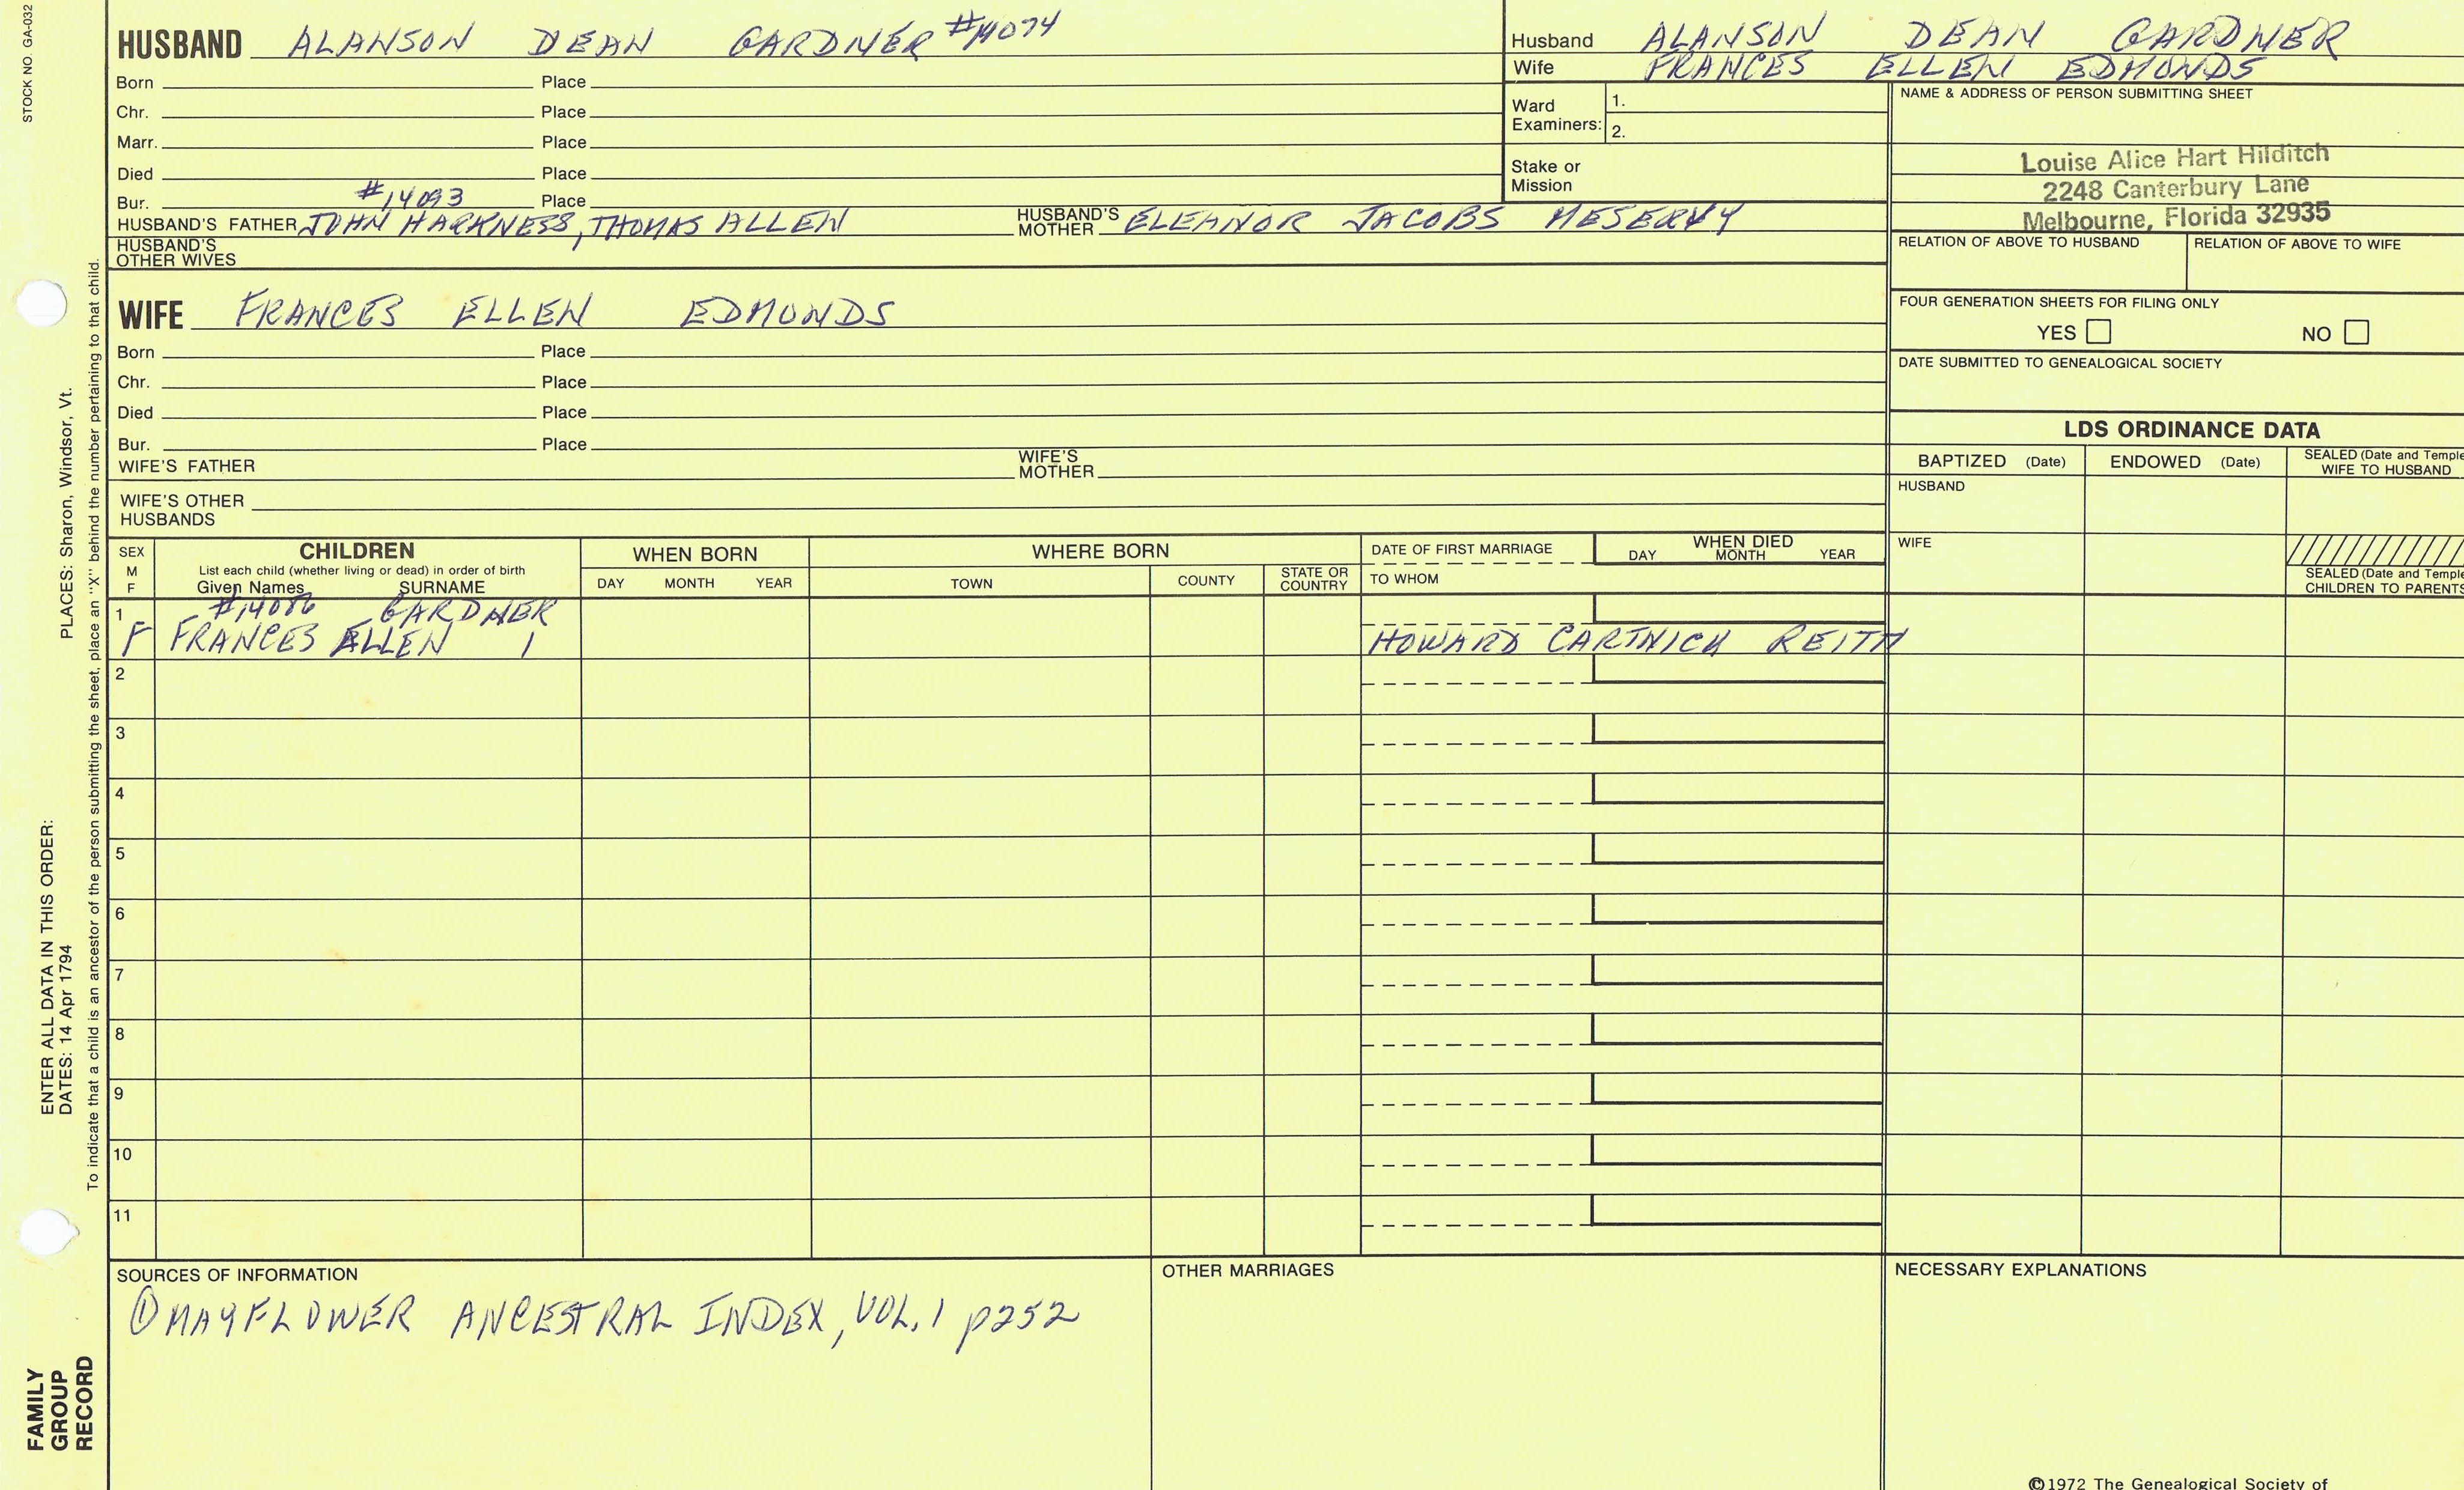 STOCK NO. GA-032
HUSBAND ALANSON DEAN GARDNER #14074
Born Place
Chr. Place
Marr. Place
Died Place
Bur. #14093 Place
HUSBAND'S FATHER JOHN HARKNESS, THOMAS ALLEN HUSBAND'S MOTHER ELEANOR JACOBS MESERVY
HUSBAND'S
OTHER WIVES
WIFE FRANCES ELLEN EDMONDS
Born Place
Chr. Place
Died Place
Bur. Place
WIFE'S FATHER WIFE'S MOTHER
WIFE'S OTHER
HUSBANDS
Husband ALANSON DEAN GARDNER
Wife FRANCES ELLEN EDMONDS
Ward Examiners: 1.
2.
Stake or
Mission
NAME & ADDRESS OF PERSON SUBMITTING SHEET
Louise Alice Hart Hilditch
2248 Canterbury Lane
Melbourne, Florida 32935
RELATION OF ABOVE TO HUSBAND RELATION OF ABOVE TO WIFE
FOUR GENERATION SHEETS FOR FILING ONLY
YES NO
DATE SUBMITTED TO GENEALOGICAL SOCIETY
LDS ORDINANCE DATA
BAPTIZED (Date) ENDOWED (Date) SEALED (Date and Temple
WIFE TO HUSBAND
HUSBAND
WIFE
SEALED (Date and Temple
CHILDREN TO PARENTS
SEX
M
F
CHILDREN
List each child (whether living or dead) in order of birth
Given Names SURNAME
WHEN BORN
DAY MONTH YEAR
WHERE BORN
TOWN COUNTY STATE OR COUNTRY
DATE OF FIRST MARRIAGE
TO WHOM
WHEN DIED
DAY MONTH YEAR
1 #14086 GARDNER
F FRANCES ELLEN 1 HOWARD REITH
2
3
4
5
6
7
8
9
10
11
SOURCES OF INFORMATION
① MAYFLOWER ANCESTRAL INDEX, VOL. 1 p252
OTHER MARRIAGES
NECESSARY EXPLANATIONS
©1972 The Genealogical Society of
PLACES: Sharon, Windsor, Vt.
ENTER ALL DATA IN THIS ORDER:
DATES: 14 Apr 1794
To indicate that a child is an ancestor of the person submitting the sheet, place an "X" behind the number pertaining to that child.
FAMILY
GROUP
RECORD